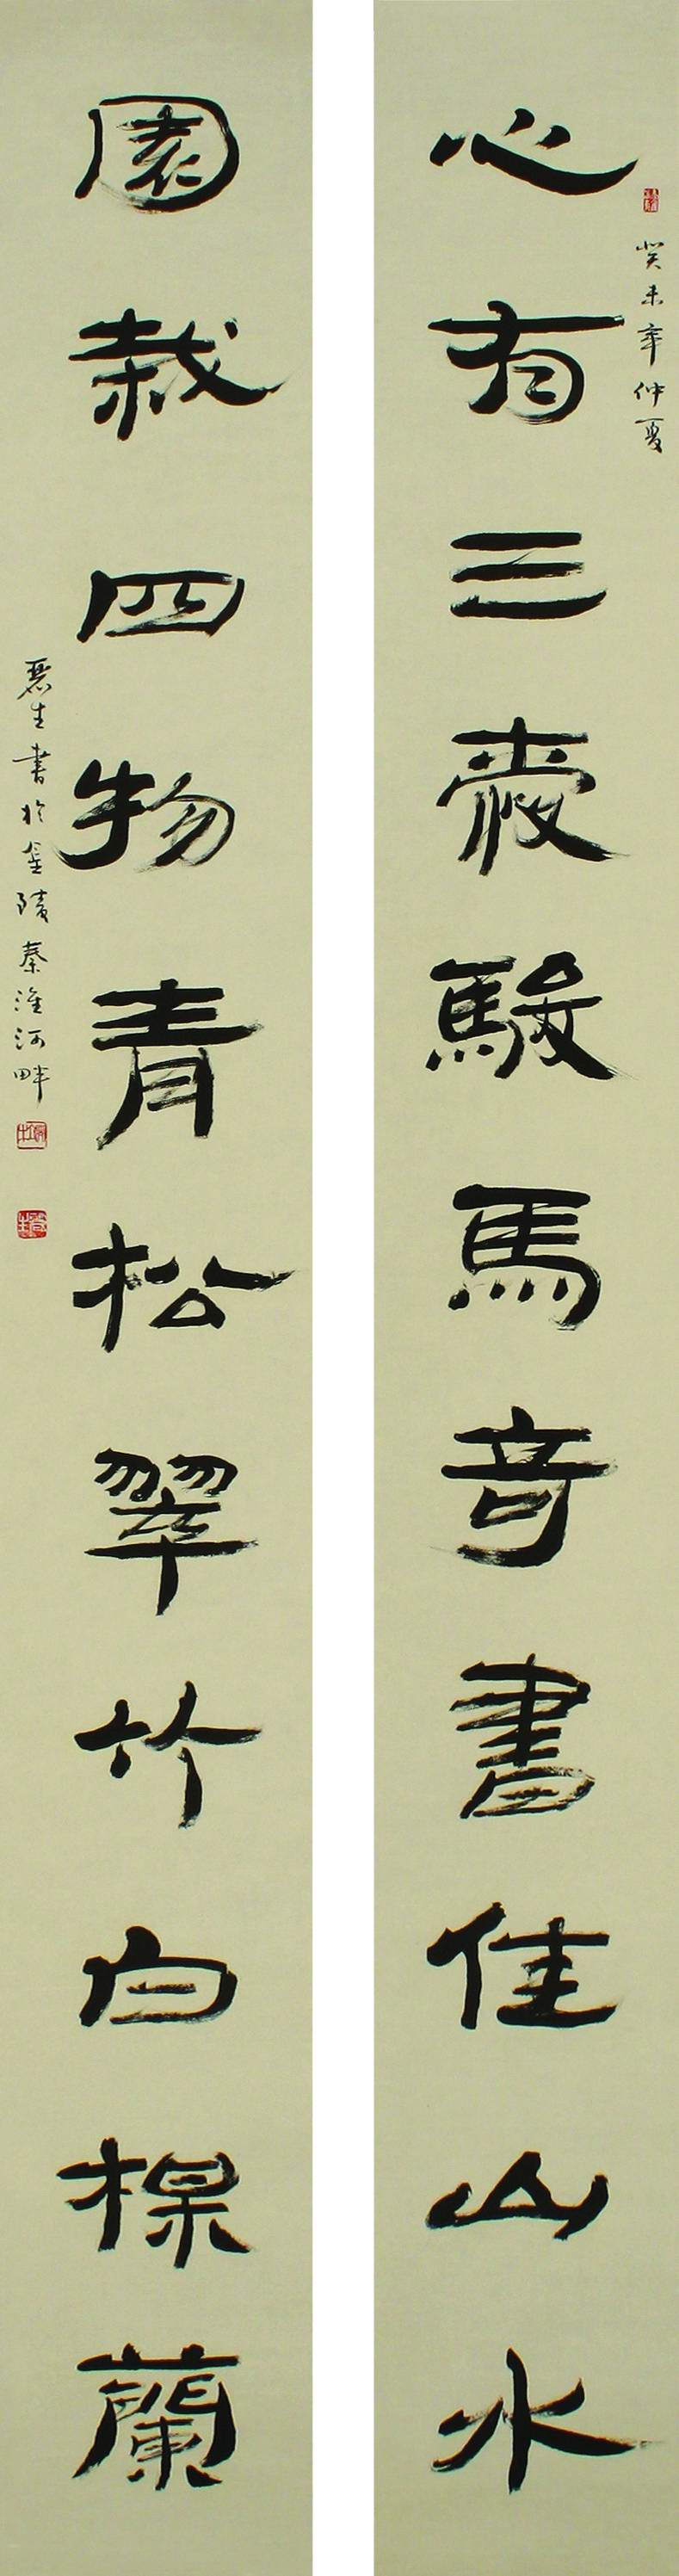 癸未年仲夏
心有三愛駿馬奇書佳山水
園栽四物青松翠竹白楳蘭
生書於金陵秦淮河畔